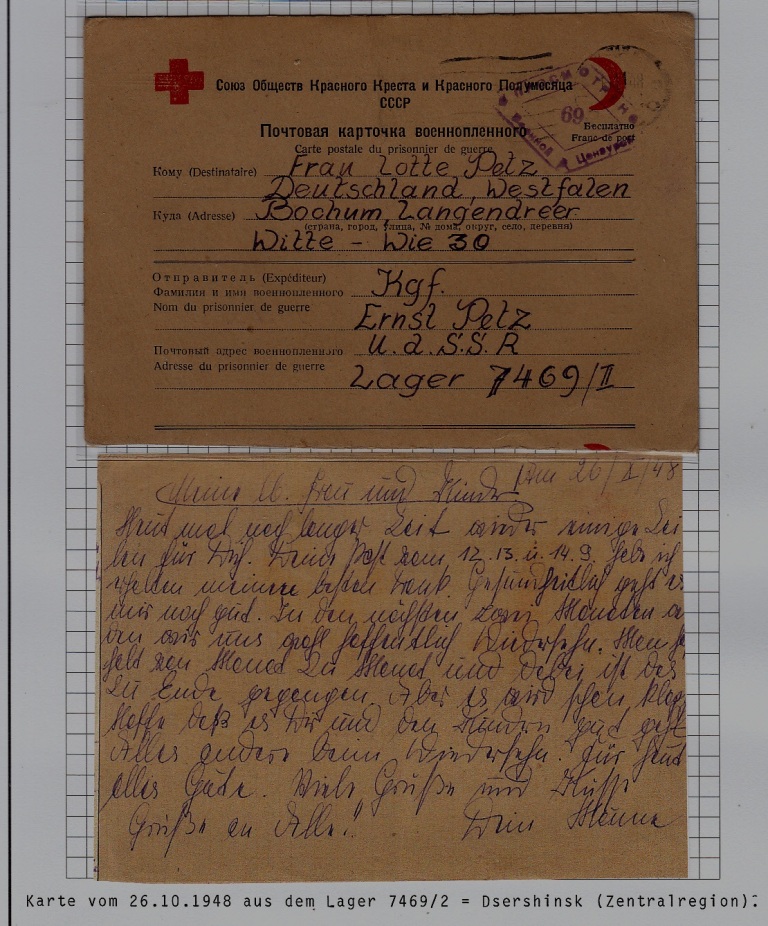 Союз Обществ Красного Креста и Красного Полумесяца
СССР
ПРОСМОТРЕНО
69
Военной Цензурой
Почтовая карточка военнопленного
Бесплатно
Franc de port
Carte postale du prisonnier de guerre
Кому (Destinataire) Frau Lotte Petz
Deutschland, Westfalen
Куда (Adresse) Bochum, Langendreer
(страна, город, улица, № дома, округ, село, деревня)
Witte - Wie 30
Отправитель (Expéditeur) Kgf.
Фамилия и имя военнопленного
Nom du prisonnier de guerre
Ernst Petz
Почтовый адрес военнопленного U.d.S.S.R
Adresse du prisonnier de guerre
Lager 7469/II
26/X/48
Meine lb. Frau und Kinder
Heut mal nach langer Zeit wieder einige Zei
len für Dich. Deine Post vom 12. 13. u. 14. 9. habe ich
erhalten meinen besten Dank. Gesundheitlich geht es
mir noch gut. In den nächsten zwei Monaten
den wir uns wohl hoffentlich Wiedersehn. Man
von Monat zu Monat und dabei ist das
zu Ende gegangen. Aber es wird schon
Hoffe daß es Dir und den Kindern gut geht
Alles andere beim Wiedersehn. Für heut
alles Gute. Viele Grüße und Küsse
Grüße an Alle!! Dein Männe
Karte vom 26.10.1948 aus dem Lager 7469/2 = Dsershinsk (Zentralregion).